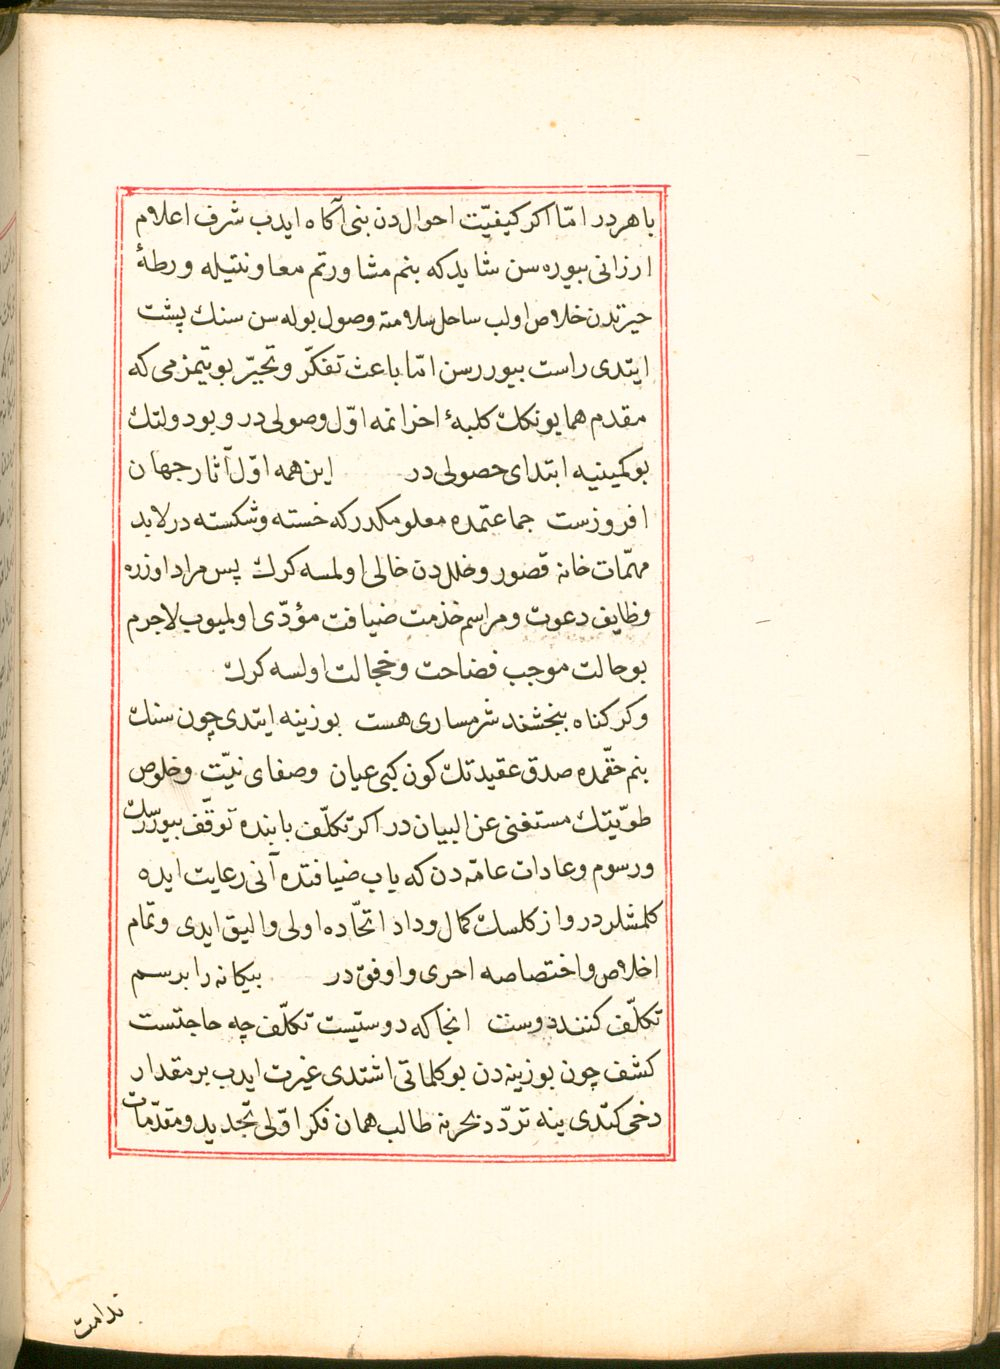 باهردر امّا اكر كيفيّت احوالدن بنى آكاه ايدب شرف اعلام
ارزانى بيوره سن شايد كه بنم مشاورتم معاونتيله ورطۀ
حيرتدن خلاص اولب ساحل سلامته وصول بوله سن سنك پشت
ايتدى راست بيوررسن امّا باعث تفكّر وتحيّر بو يتيمزمى كه
مقدم همايونكك كلبۀ احزانمه اوّل وصولى در وبو دولتك
بو كمينيه ابتداى حصولى در اين همه اوّل آثار جهان
افروزست جماعتمده معلومكدر كه خسته وشكسته در لابد
مهمّات خانه قصور وخللدن خالى اولمسه كرك پس مراد اوزره
وظايف دعوت ومراسم خذمت ضيافت مؤدّى اولميوب لاجرم
بو حالت موجب فضاحت وخجالت اولسه كرك
وكر كناه ببخشند شرمسارى هست بوزينه ايتدى چون سنك
بنم حقّمده صدق عقيدتك كون كبى عيان وصفاى نيّت وخلوص
طويّتك مستغنى عن البيان در اكر تكلّف بابنده توقّف بيوررسك
ورسوم وعادات عامّه دن كه ياب ضيافتده آنى رعايت ايده
كلمشلردر واز كلسك كمال وداد اتّحاده اولى واليق ايدى وتمام
اخلاص واختصاصه احرى واوفق در بيكانه را برسم
تكلّف كنند دوست انجا كه دوستيست تكلّف چه حاجتست
كشف چون بوزينه دن بو كلماتى اشتدى غيرت ايدب بر مقدار
دخى كتدى ينه تردّد بحرنه طالب همان فكر اوّلى تجديد ومقدّمات
ندامت